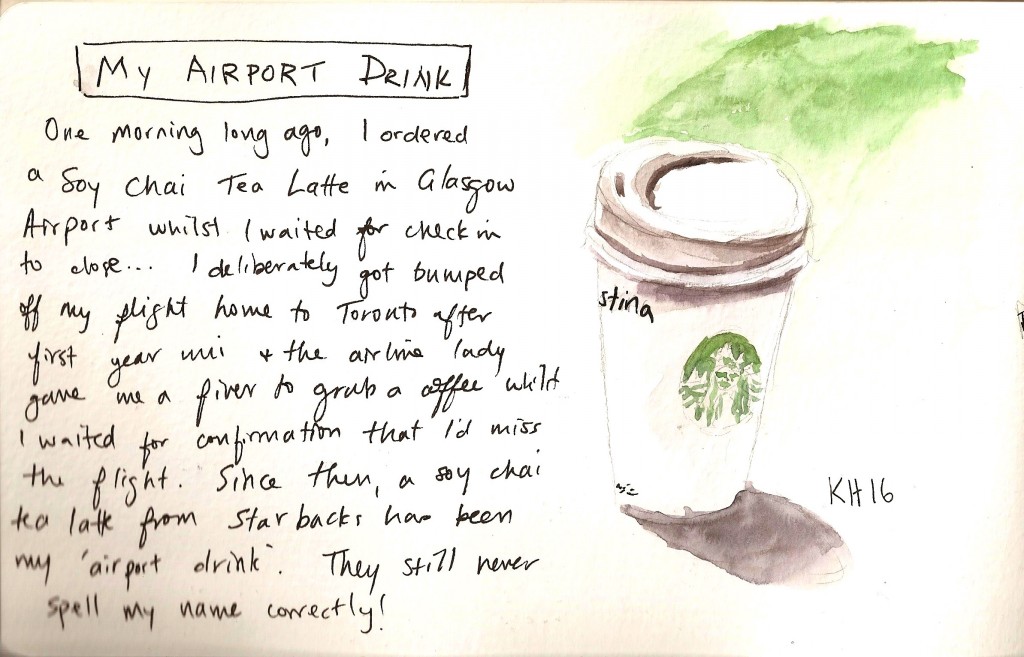 My Airport Drink
One morning long ago, I ordered
a Soy Chai Tea Latte in Glasgow
Airport whilst I waited for check in
to close... I deliberately got bumped
off my flight home to Toronto after
first year uni & the airline lady
gave me a fiver to grab a coffee whilst
I waited for confirmation that I'd miss
the flight. Since then, a soy chai
tea latte from Starbacks has been
my 'airport drink'. They still never
spell my name correctly!
stina
KH16